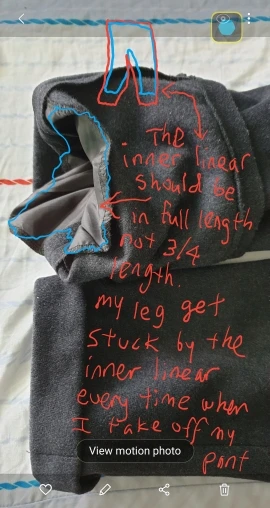 The
inner linear
should be
in full length
not 3/4
length.
my leg get
stuck by the
inner linear
every time when
I take off my
pant
View motion photo